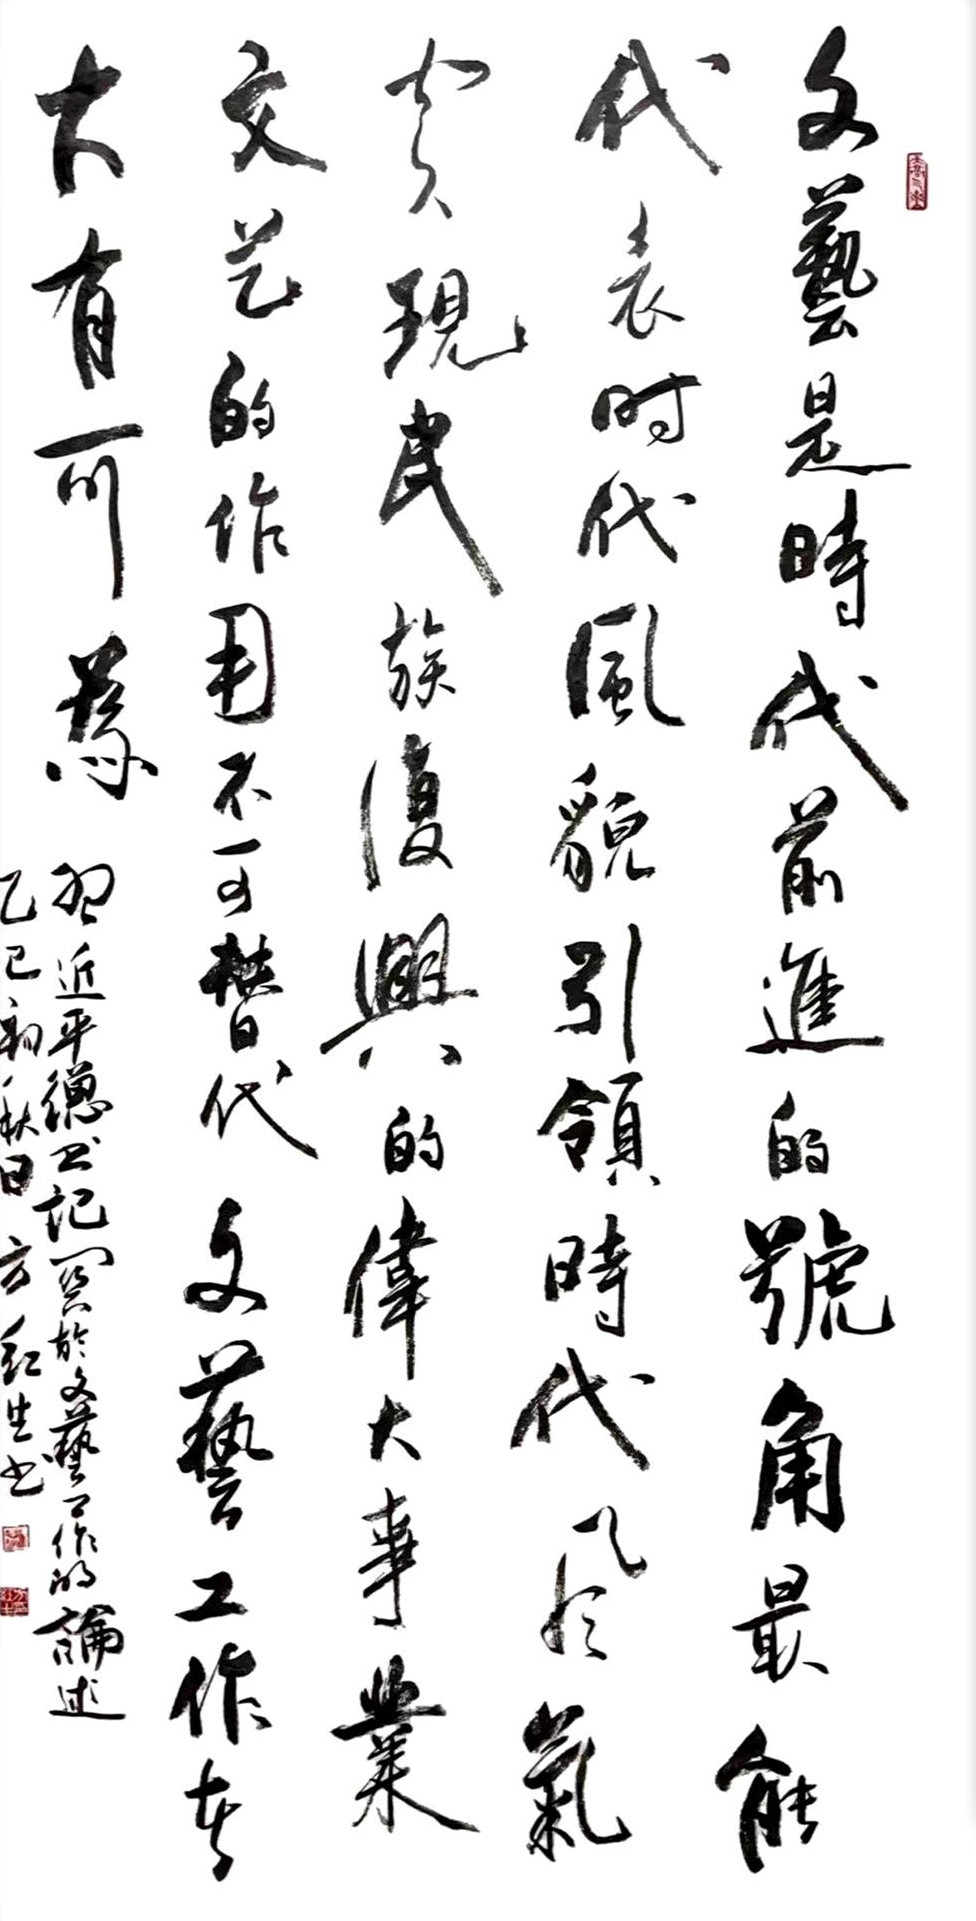 文藝是時代前進的號角最能
代表时代風貌引領時代風氣
实現民族復興的偉大事業
文艺的作用不可替代文藝工作者
大有可為
習近平總书記関於文藝工作的論述
乙巳初秋日方紅生书